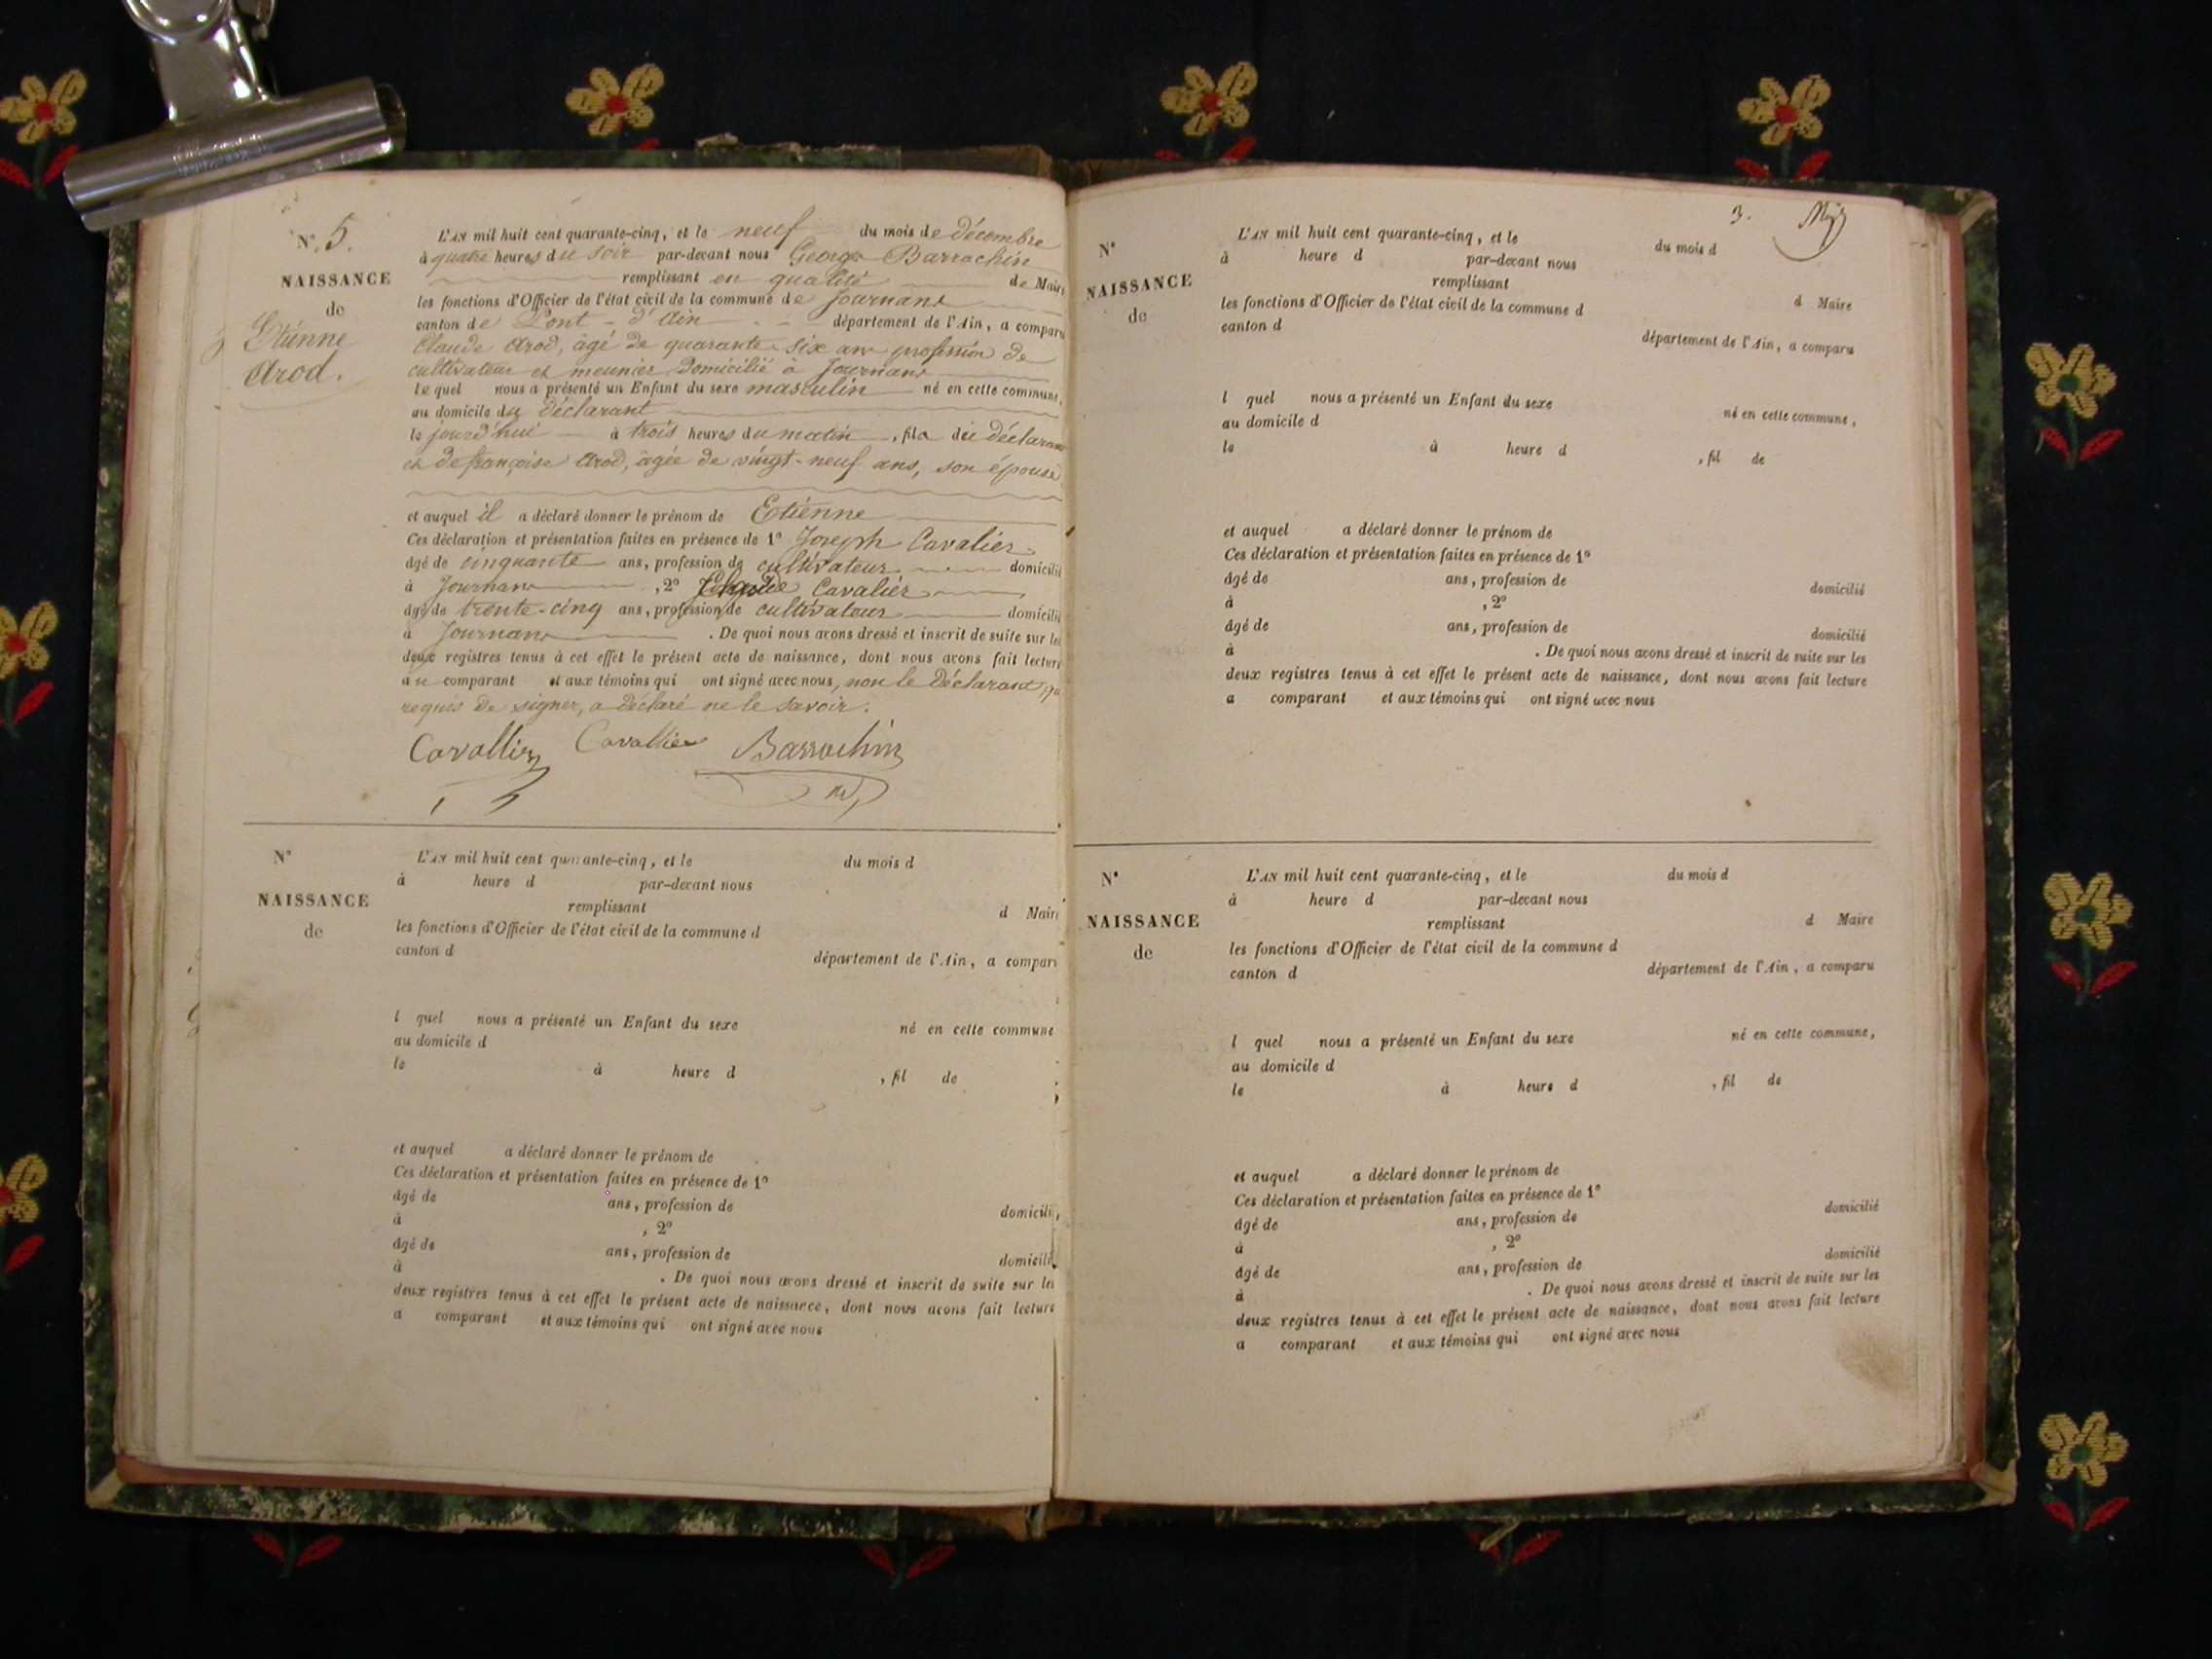 N° 5.
NAISSANCE
de
Etienne
Arod.
L'AN mil huit cent quarante-cinq, et le neuf du mois de décembre
à quatre heures du soir par-devant nous George Barrachin
remplissant en qualité de Maire
les fonctions d'Officier de l'état civil de la commune de Journans
canton de Pont-d'Ain département de l'Ain, a comparu
Claude Arod, agé de quarante-six ans profession de
cultivateur et meunier domicilié à Journans
lequel nous a présenté un Enfant du sexe masculin né en cette commune,
au domicile du déclarant
le jourd'hui à trois heures du matin, fils du déclarant
et de françoise Arod, agée de vingt-neuf ans, son épouse
et auquel il a déclaré donner le prénom de Etienne
Ces déclaration et présentation faites en présence de 1° Joseph Cavalier
âgé de cinquante ans, profession de cultivateur domicilié
à Journans, 2° Cavalier
âgé de trente-cinq ans, profession de cultivateur domicilié
à Journans. De quoi nous avons dressé et inscrit de suite sur les
deux registres tenus à cet effet le présent acte de naissance, dont nous avons fait lecture
au comparant et aux témoins qui ont signé avec nous, non le déclarant qui
requis de signer, a déclaré ne le savoir.
Cavallier Cavallier Barrachin
N°
NAISSANCE
de
L'AN mil huit cent quarante-cinq, et le du mois d
à heure d par-devant nous
remplissant d Maire
les fonctions d'Officier de l'état civil de la commune d
canton d département de l'Ain, a comparu
l quel nous a présenté un Enfant du sexe né en cette commune
au domicile d
le à heure d , fil de
et auquel a déclaré donner le prénom de
Ces déclaration et présentation faites en présence de 1°
âgé de ans, profession de domicilié
à , 2°
âgé de ans, profession de domicilié
à . De quoi nous avons dressé et inscrit de suite sur les
deux registres tenus à cet effet le présent acte de naissance, dont nous avons fait lecture
a comparant et aux témoins qui ont signé avec nous
3.
N°
NAISSANCE
de
L'AN mil huit cent quarante-cinq, et le du mois d
à heure d par-devant nous
remplissant d Maire
les fonctions d'Officier de l'état civil de la commune d
canton d département de l'Ain, a comparu
l quel nous a présenté un Enfant du sexe né en cette commune,
au domicile d
le à heure d , fil de
et auquel a déclaré donner le prénom de
Ces déclaration et présentation faites en présence de 1°
âgé de ans, profession de domicilié
à , 2°
âgé de ans, profession de domicilié
à . De quoi nous avons dressé et inscrit de suite sur les
deux registres tenus à cet effet le présent acte de naissance, dont nous avons fait lecture
a comparant et aux témoins qui ont signé avec nous
N°
NAISSANCE
de
L'AN mil huit cent quarante-cinq, et le du mois d
à heure d par-devant nous
remplissant d Maire
les fonctions d'Officier de l'état civil de la commune d
canton d département de l'Ain, a comparu
l quel nous a présenté un Enfant du sexe né en cette commune,
au domicile d
le à heure d , fil de
et auquel a déclaré donner le prénom de
Ces déclaration et présentation faites en présence de 1°
âgé de ans, profession de domicilié
à , 2°
âgé de ans, profession de domicilié
à . De quoi nous avons dressé et inscrit de suite sur les
deux registres tenus à cet effet le présent acte de naissance, dont nous avons fait lecture
a comparant et aux témoins qui ont signé avec nous